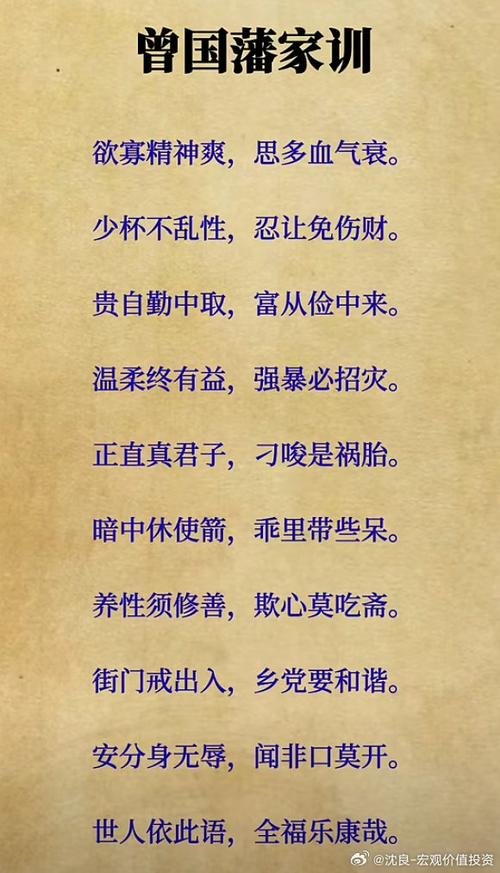 曾国藩家训
欲寡精神爽，思多血气衰。
少杯不乱性，忍让免伤财。
贵自勤中取，富从俭中来。
温柔终有益，强暴必招灾。
正直真君子，刁唆是祸胎。
暗中休使箭，乖里带些呆。
养性须修善，欺心莫吃斋。
街门戒出入，乡党要和谐。
安分身无辱，闻非口莫开。
世人依此语，全福乐康哉。
@沈良-宏观价值投资